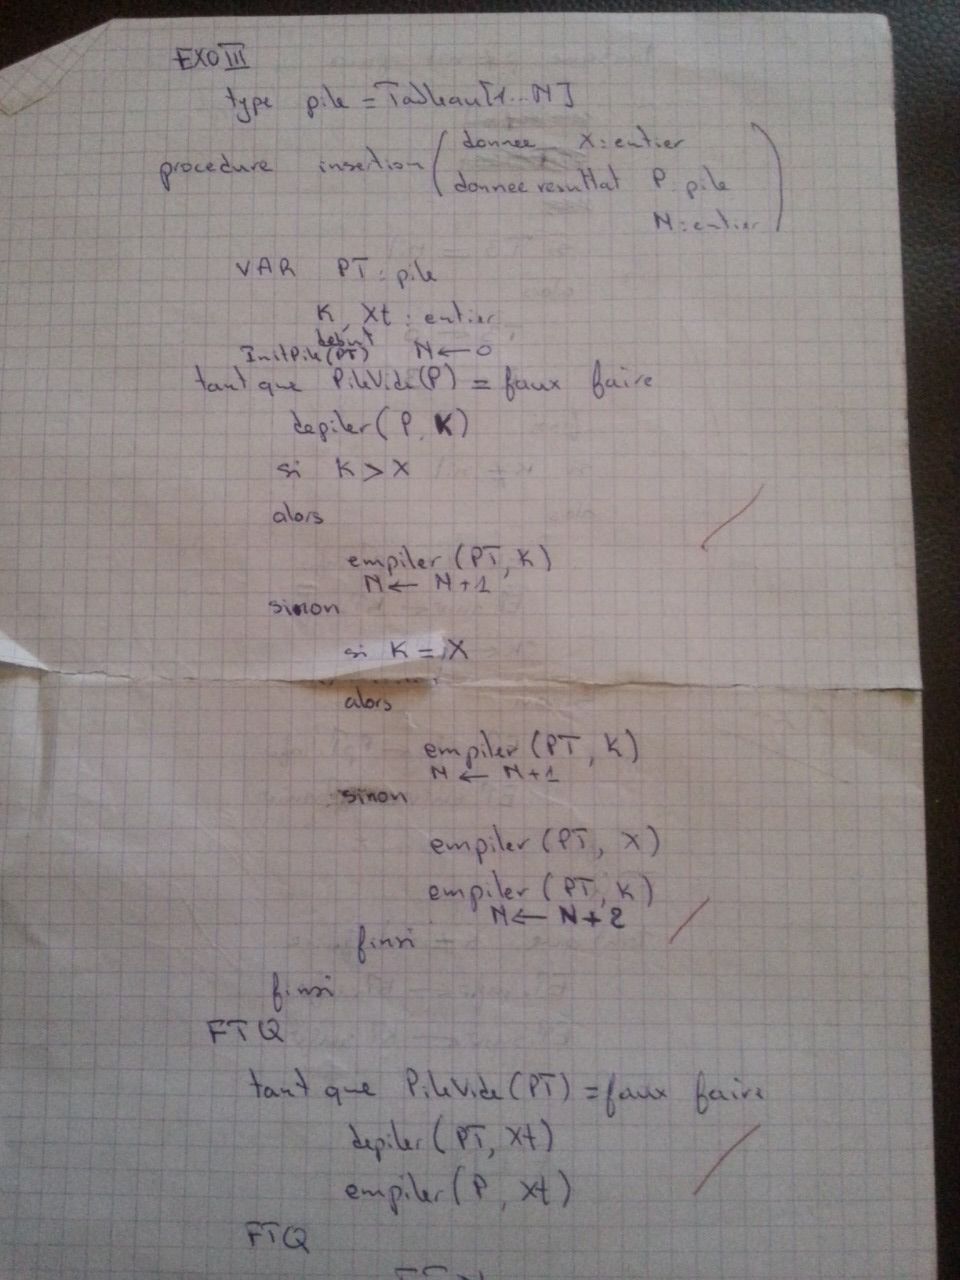 EXO III
type pile = Tableau [1...N]
procedure insertion ( donnee X : entier
donnee resultat P : pile
N : entier )
VAR PT : pile
K, Xt : entier
debut
InitPile(PT) N ← 0
tant que PileVide(P) = faux faire
depiler(P, K)
si K > X
alors
empiler (PT, K)
N ← N+1
sinon
si K = X
alors
empiler (PT, K)
N ← N+1
sinon
empiler (PT, X)
empiler (PT, K)
N ← N+2
finsi
finsi
FTQ
tant que PileVide(PT) = faux faire
depiler(PT, Xt)
empiler(P, Xt)
FTQ